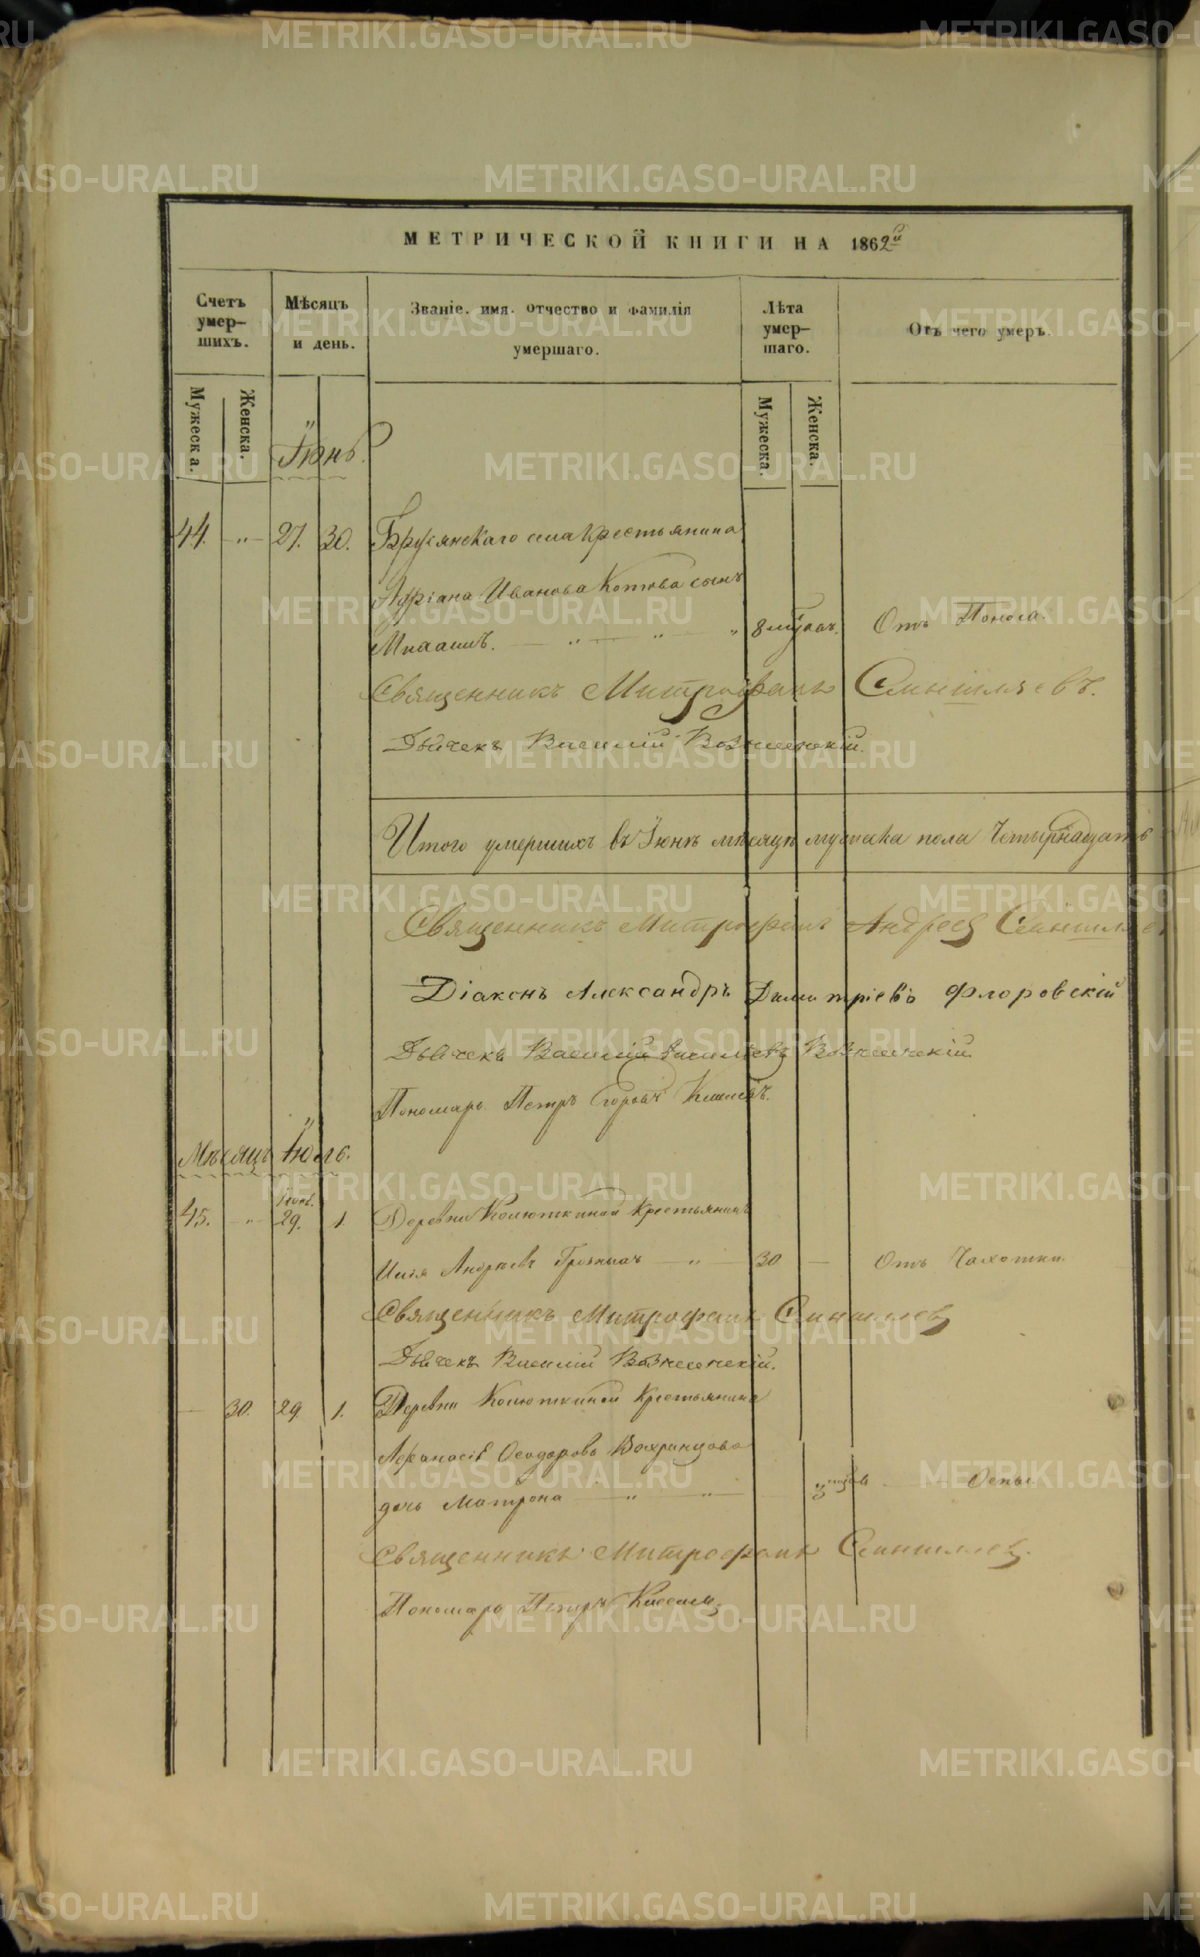 МЕТРИЧЕСКОЙ КНИГИ НА 1862й
Счетъ умер-шихъ.
Мѣсяцъ и день.
Званіе. имя. отчество и фамилія умершаго.
Лѣта умер-шаго.
Отъ чего умеръ.
Мужеска.
Женска.
Мужеска.
Женска.
Іюнь.
44. „ 27. 30. Брусянскаго села Крестьянина
Адріана Иванова Котова сынъ
8 Отъ Поноса.
Священникъ Митрофанъ
Дьячекъ Василій Вознесенскій.
Итого умершихъ въ Іюнѣ мѣсяцѣ мужеска пола Четырнадцать
Священникъ Митрофанъ Андреевъ
Діаконъ Александръ Димитріевъ Флоровскій
Дьячекъ Василій Васильевъ Вознесенскій.
Пономарь Петръ Егоровъ
Мѣсяцъ Іюль.
Іюнь.
45. „ 29. 1. Деревни Колюткиной Крестьянинъ
Андреевъ 30 — Отъ Чахотки
Священникъ Митрофанъ
Дьячекъ Василій Вознесенскій.
— 30. 29 1. Деревни Колюткиной Крестьянина
Афанасія Ѳеодорова
дочь Матрона „ „ Оспы
Священникъ Митрофанъ
Пономарь Петръ
METRIKI.GASO-URAL.RU